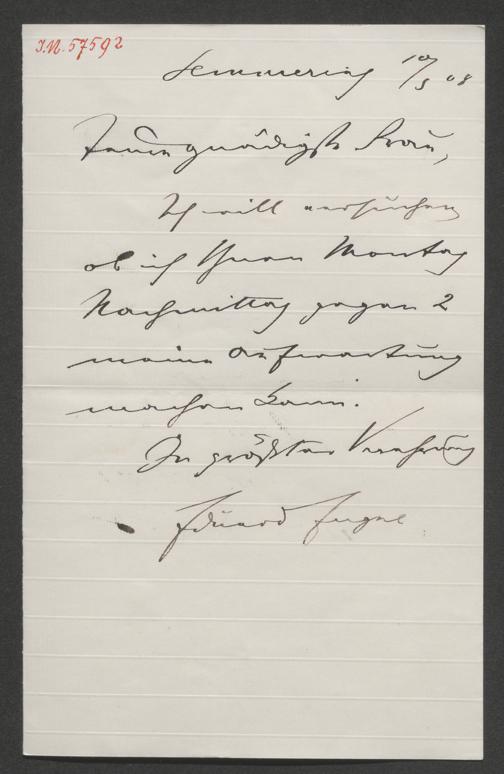 I.N. 57592
Semmering 10/5 08
gnädigste Frau,
Ich will versuchen
ob ich Ihnen Montag
Nachmittag gegen 2
meine Aufwartung
machen kann.
In größter Verehrung
Eduard Engel